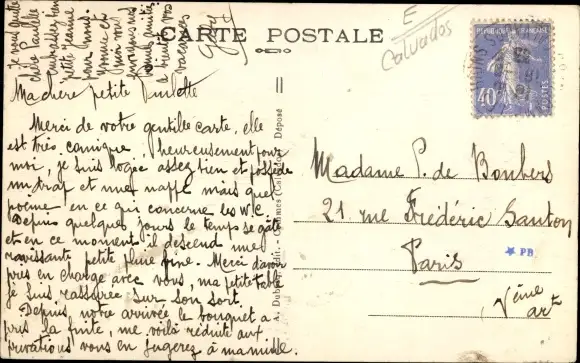 CARTE POSTALE
E
Calvados
Je vous quitte
chère Paulette
embrassez bien
petite Jeanine
pour nous.
Yvonne et
moi vous
envoyons nos
bonnes amitiés
vacances
Ma chère petite Paulette
Merci de votre gentille carte, elle
est très comique, heureusement pour
moi, je suis logée assez bien et possède
un trap et une nappe mais quel
poème en ce qui concerne les W.C.
Depuis quelques jours le temps se gâte
et en ce moment il descend une
ravissante petite pluie fine. Merci d'avoir
pris en charge avec vous, ma petite table
je suis rassurée sur son sort.
Depuis notre arrivée le bouquet a
pris la fuite, me voilà réduite aux
privations vous en jugerez à ma mine.
Déposé
RÉPUBLIQUE FRANÇAISE
40c
POSTES
Madame P. de Bonbers
21 rue Frédéric Santon
Paris
Vème
art
* PB